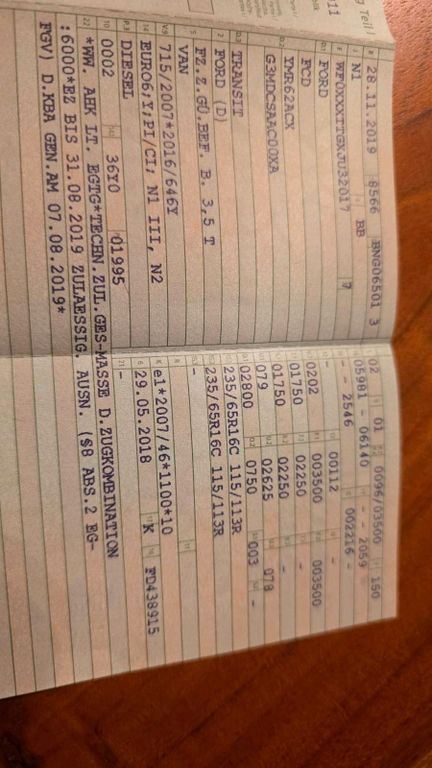 28.11.2019 8566 BNG06501 3
N1 BB
WF0XXXTTGXJU32017 7
FORD
FCD
YMR62ACX
G3MDCSAAC00XA
TRANSIT
FORD (D)
FZ.Z.GÜ.BEF. B. 3,5 T
VAN
715/2007*2016/646Y
EURO6;Y;PI/CI; N1 III, N2
DIESEL
0002 36Y0 01995
*WW. AHK LT. EGTG*TECHN.ZUL.GES-MASSE D.ZUGKOMBINATION
:6000*EZ BIS 31.08.2019 ZULAESSIG. AUSN. (§8 ABS.2 EG-
FGV) D.KBA GEN.AM 07.08.2019*
02 01 0096/03500 150
05981 - 06140 - 2059
- - 2546 002216 -
- 00112 -
0202 003500 003500
01750 02250 -
01750 02250 -
079 02625 078
02800 0750 003 -
235/65R16C 115/113R
235/65R16C 115/113R
-
e1*2007/46*1100*10
29.05.2018 K FD438915
-